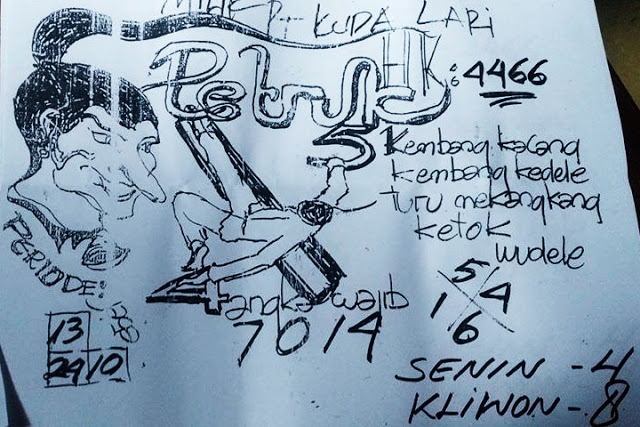 KUDA LARI
HK: 4466
5
Kembang kacang
kembang kedele
turu mekangkang
ketok
wudele
PERIODE:
angka wajib
7014
5
1 4
6
13
29 10
SENIN - 4
KLIWON - 8